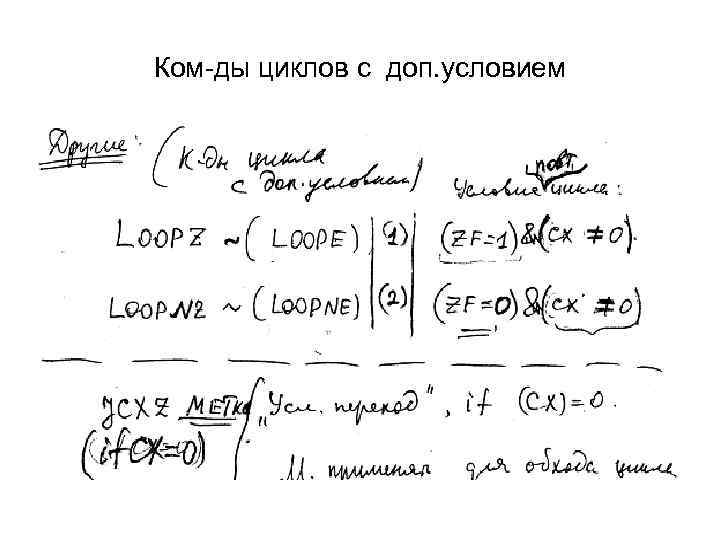 Ком-ды циклов с доп.условием
Другие: (К-ды цикла
с доп.условием)
Условие повт. цикла:
LOOPZ ~ (LOOPE) | (1) | (ZF=1) & (CX ≠ 0).
LOOPNZ ~ (LOOPNE) | (2) | (ZF=0) & (CX ≠ 0)
JCXZ МЕТКА „Усл. переход", if (CX)=0.
(if CX=0)
М. применять для обхода цикла